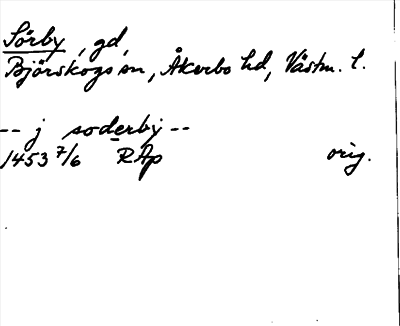 Sörby, gd,
Björskogs sn, Åkerbo hd, Västm. l.
-- j soderby --
1453 7/6 RAp orig.